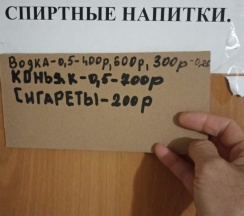 СПИРТНЫЕ НАПИТКИ.
ВОДКА-0,5-400р, 600р, 300р-0,25
КОНЬЯК-0,5-700р
СИГАРЕТЫ-200р